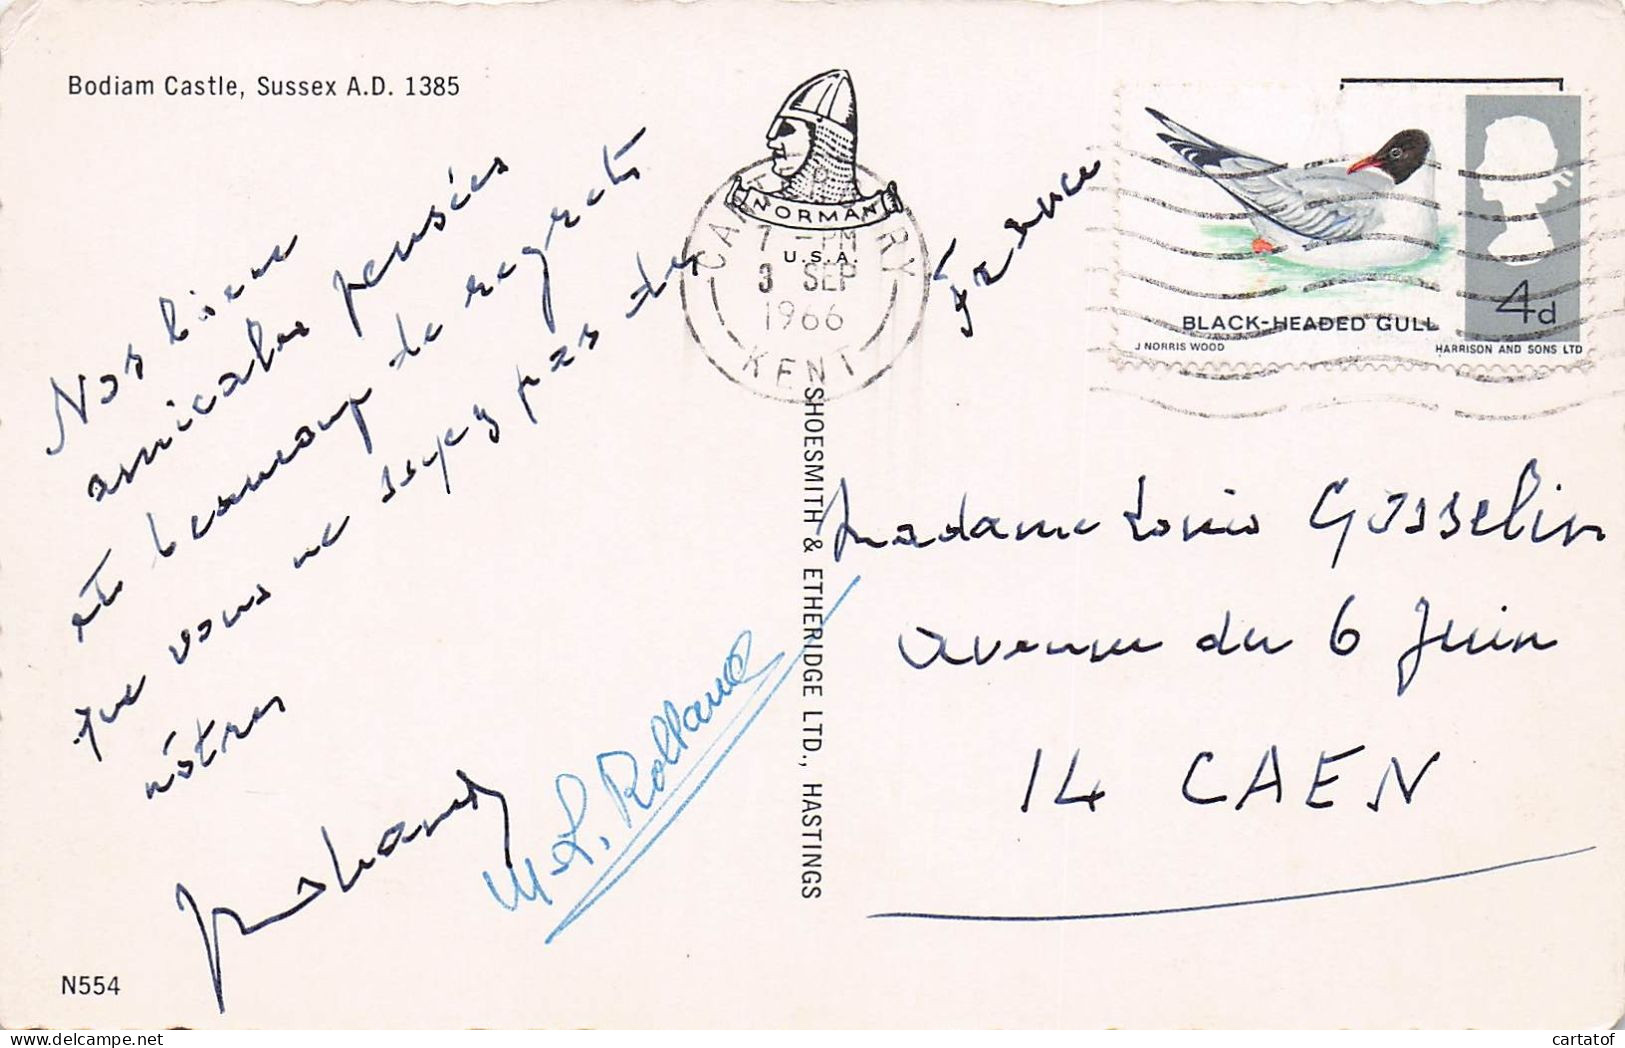 Bodiam Castle, Sussex A.D. 1385
NORMAN
U.S.A.
CANTERBURY
7 - PM
3 SEP
1966
KENT
BLACK-HEADED GULL
4d
J NORRIS WOOD
HARRISON AND SONS LTD
France
Nos bien
amicales pensées
et beaucoup de regrets
que vous ne soyez pas des
nôtres
M.L. Rolland
SHOESMITH & ETHERIDGE LTD., HASTINGS
Madame Louis Gosselin
avenue du 6 Juin
14 CAEN
N554
cartatof